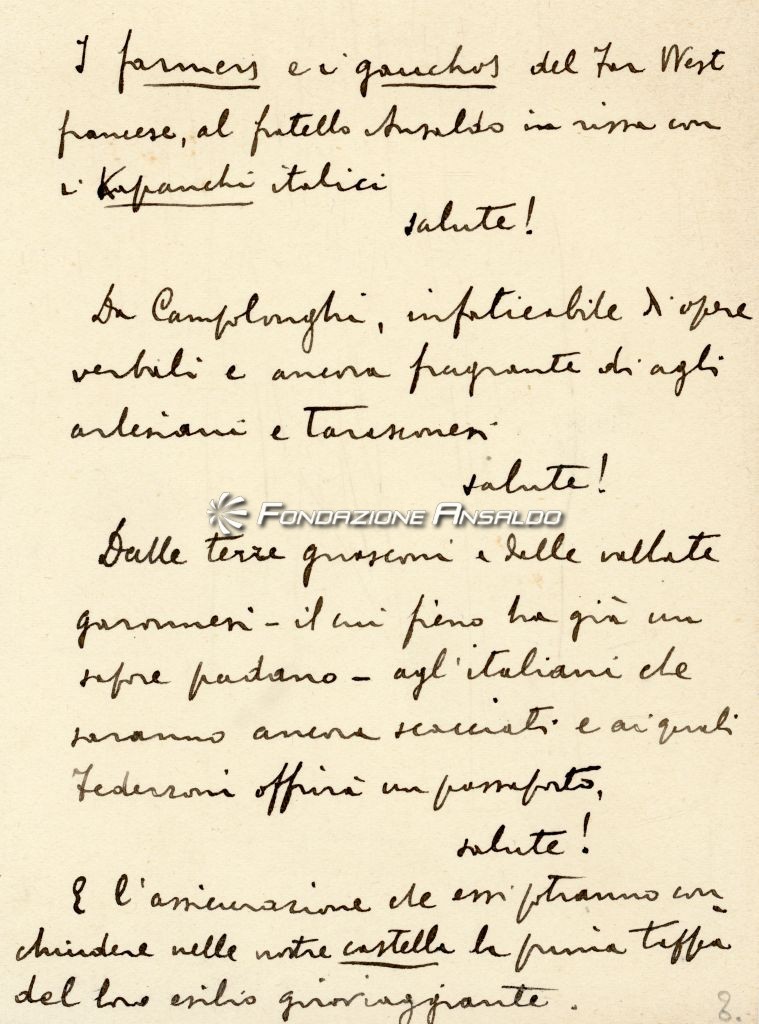 I farmers e i gauchos del Far West
francese, al fratello Ansaldo in rissa con
i Kapanchi italici
salute!
Da Campolonghi, infaticabile di opere
verbali e ancora fragrante di agli
arlesiani e tarasconesi
salute!
FONDAZIONE ANSALDO
Dalle terre guasconi e dalle vallate
garonnesi - il cui fieno ha già un
sapore padano - agl'italiani che
saranno ancora scacciati e ai quali
Federzoni offrirà un passaporto,
salute!
E l'assicurazione che essi potranno con-
chiudere nelle nostre castella la prima tappa
del loro esilio giroviaggiante.
8.